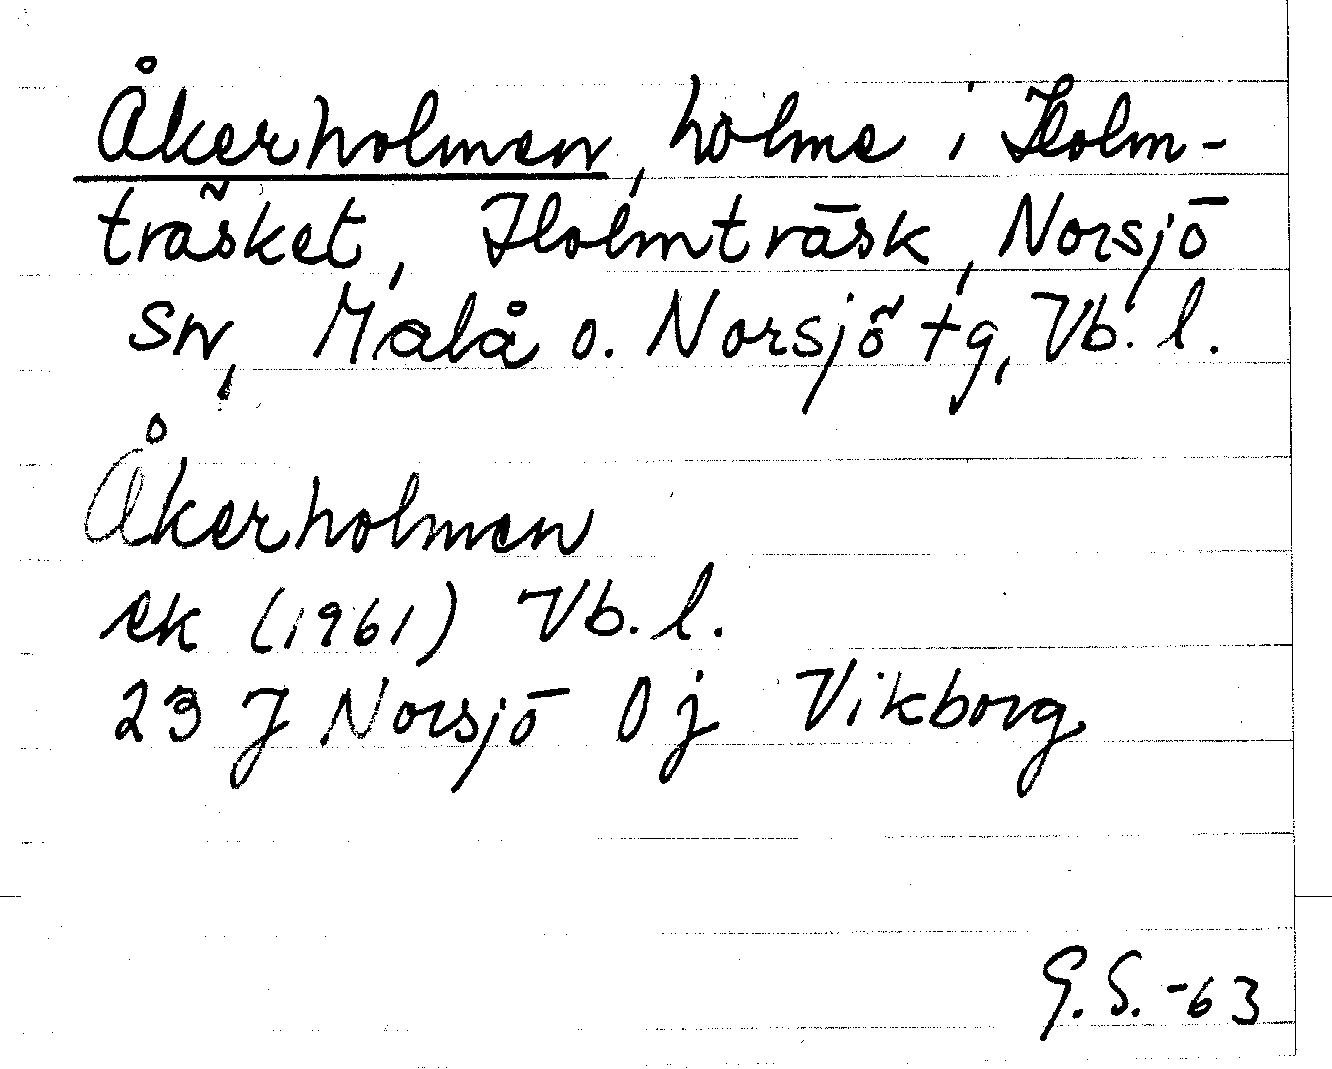 Åkerholmen, holme i Holm-
träsket, Holmträsk, Norsjö
sn, Malå o. Norsjö tg, Vb. l.
Åkerholmen
ek (1961) Vb. l.
23 J Norsjö 0 j Vikborg
G.S. -63